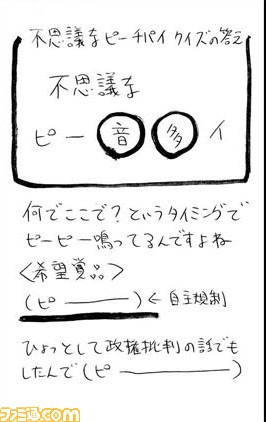 不思議なピーチパイクイズの答え
不思議な
ピー音多イ
何でここで?というタイミングで
ピーピー鳴ってるんですよね
<希望賞品>
(ピ―――)←自主規制
ひょっとして政権批判の話でも
したんで(ピ――――)
ファミ通.com